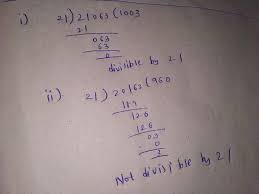 i) 21) 21063 (1003
21
063
63
0
divisible by 21
ii) 21) 20163 (960
189
126
126
03
0
3
Not divisible by 21